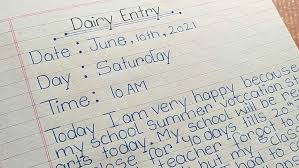 Dairy Entry
Date : June, 10th, 2021
Day : Saturday
Time : 10 AM
Today I am very happy because
my school Summer Voccation s
arts today. My school will be
ose for 40 days tills 20
teacher forgot to